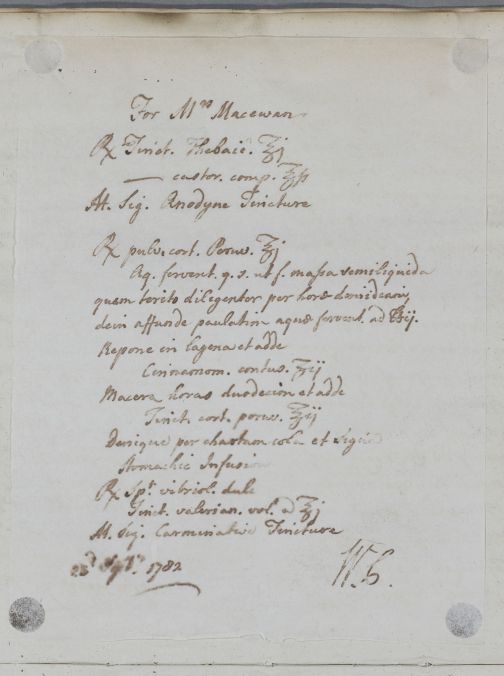 For Mrs Macewan
℞ Tinct. Thebaic. ʒj
— castor. comp. ʒſs
M. Sig. Anodyne Tincture
℞ pulv. cort. Peruv. ℥j
Aq. fervent. q. s. ut f. massa semiliquida
quam terito diligenter per horæ dimidium,
dein affunde paulatim aquæ fervent. ad ℔ij.
Repone in lagena et adde
Cinnamom. contus. ʒij
Macera horas duodecim et adde
Tinct. cort. peruv. ℥ij
Denique per chartam cola et Signa
Stomachic Infusion
℞ Spt. vitriol. dulc
Tinct. valerian. vol. a ℥j
M. Sig. Carminative Tincture
23d Sepr. 1782
W. C.